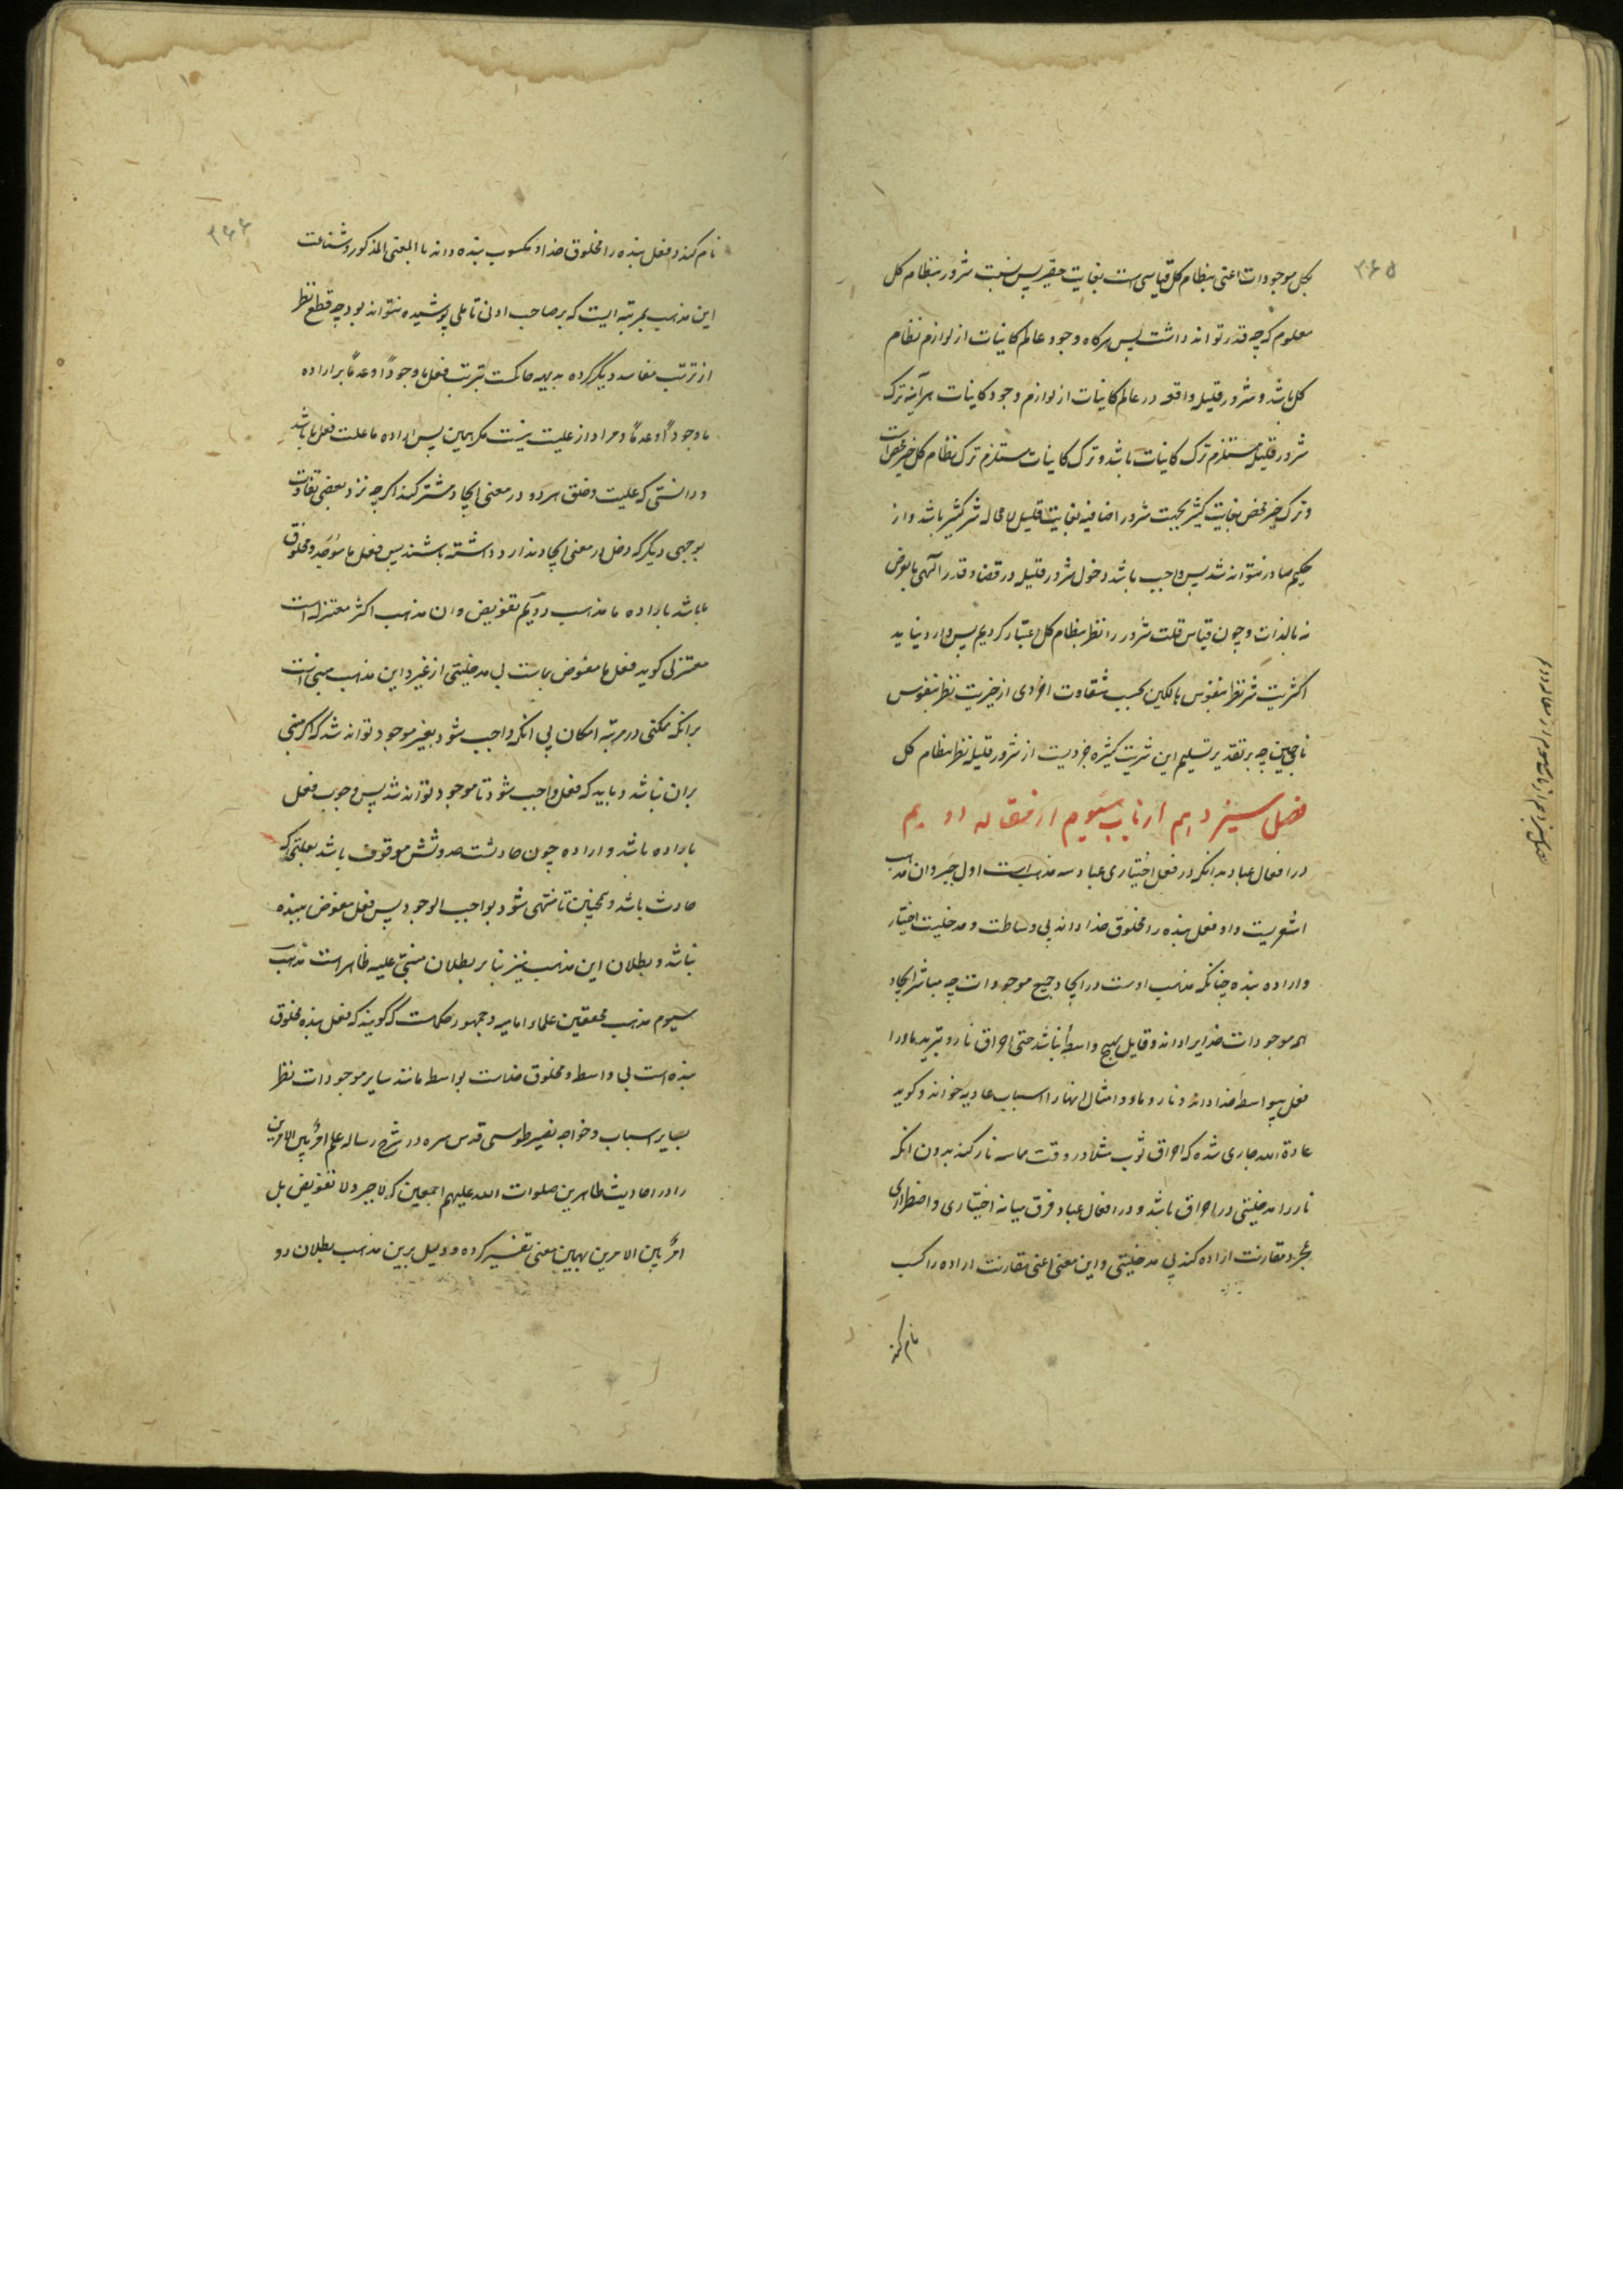 ۳۶۵
بکل موجودات اعنی بنظام کل قیاسی است بغایت حقیر پس نسبت شرور بنظام کل
معلوم که چه قدر تواند داشت پس هرگاه وجود عالم کاینات از لوازم نظام
کل باشد و شرور قلیله واقعه در عالم کاینات از لوازم وجود کاینات هرآینه ترک
شرور قلیل مستلزم ترک کاینات باشد و ترک کاینات مستلزم ترک نظام کل که خیر محض است
و ترک خیر محض بغایت کثیر بجهت شرور اضافیه بغایت قلیل لا محاله شر کثیر باشد و از
حکیم صادر نتواند شد پس واجب باشد دخول شرور قلیله در قضا و قدر الهی بالعرض
نه بالذات و چون قیاس قلت شرور را نظر بنظام کل اعتبار کردیم پس وارد نیاید
اکثریت شر نظر بنفوس هالکین بحسب شقاوت اخروی از خیریت نظر بنفوس
ناجین چه بر تقدیر تسلیم این شریت کثیره جزویست از شرور قلیله نظر بنظام کل
فصل سیزدهم از باب سیوم از مقاله دویم
در افعال عباد بدانکه در فعل اختیاری عباد سه مذهب است اول جبر و ان مذهب
اشعریست و او فعل بنده را مخلوق خدا داند بی وساطت و مدخلیت اختیار
و اراده بنده چنانکه مذهب اوست در ایجاد جمیع موجودات چه مباشر ایجاد
همه موجودات خدایرا داند و قایل بهیچ واسطه نباشد حتی احراق نار و تبرید ما را
فعل بیواسطه خدا داند و نار و ماء و امثال اینها را اسباب عادیه خواند و گوید
عادة الله جاری شده که احراق ثوب مثلا در وقت مماسه نار کند بدون انکه
نار را مدخلیتی در احراق باشد و در افعال عباد فرق میانه اختیاری و اضطراری
بمجرد مقارنت اراده کند بی مدخلیتی و این معنی اعنی مقارنت اراده را کسب
نام کند
۳۶۶
نام کند و فعل بنده را مخلوق خدا و مکسوب بنده داند بالمعنی المذکور و شناعت
این مذهب بمرتبه ایست که بر صاحب ادنی تاملی پوشیده نتواند بود چه قطع نظر
از ترتب مفاسد دیگر کرده بدیهه حاکمست بترتب فعل ما وجودًا و عدمًا بر اراده
ما وجودًا و عدمًا و مراد از علیت نیست مگر همین پس اراده ما علت فعل ما باشد
و دانستی که علیت و خلق هر دو در معنی ایجاد مشترکند اگرچه نزد بعضی تفاوت
بوجهی دیگر که دخل در معنی ایجاد ندارد داشته باشند پس فعل ما موجَد و مخلوق
ما باشد باراده ما مذهب دویم تفویض و ان مذهب اکثر معتزله است
معتزلی گوید فعل ما مفوض بماست بی مدخلیتی از غیر و این مذهب مبنی است
برانکه ممکنی در مرتبه امکان بی انکه واجب شود بغیر موجود تواند شد که اگر مبنی
بران نباشد و باید که فعل واجب شود تا موجود تواند شد پس وجوب فعل
باراده باشد و اراده چون حادثست حدوثش موقوف باشد بعلتی که
حادث باشد و همچنین تا منتهی شود بواجب الوجود پس فعل مفوض ببنده
نباشد و بطلان این مذهب نیز بنابر بطلان مبنی علیه ظاهر است مذهب
سیوم مذهب محققین علماء امامیه و جمهور حکماست که گویند که فعل بنده مخلوق
بنده است بی واسطه و مخلوق خداست بواسطه مانند سایر موجودات نظر
بسایر اسباب و خواجه نصیر طوسی قدس سره در شرح رساله علم امرٌ بین الامرین
را در احادیث طاهرین صلوات الله علیهم اجمعین که لا جبر و لا تفویض بل
امرٌ بین الامرین بهمین معنی تفسیر کرده و دلیل برین مذهب بطلان دو